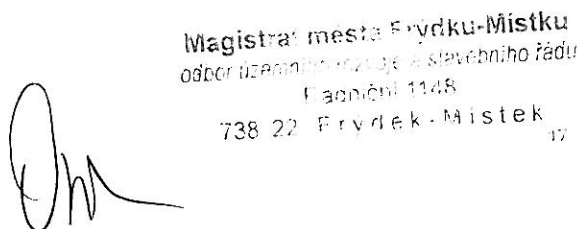 Magistrát města Frýdku-Místku
odbor územního rozvoje a stavebního řádu
Radniční 1148
738 22 Frýdek-Místek
17